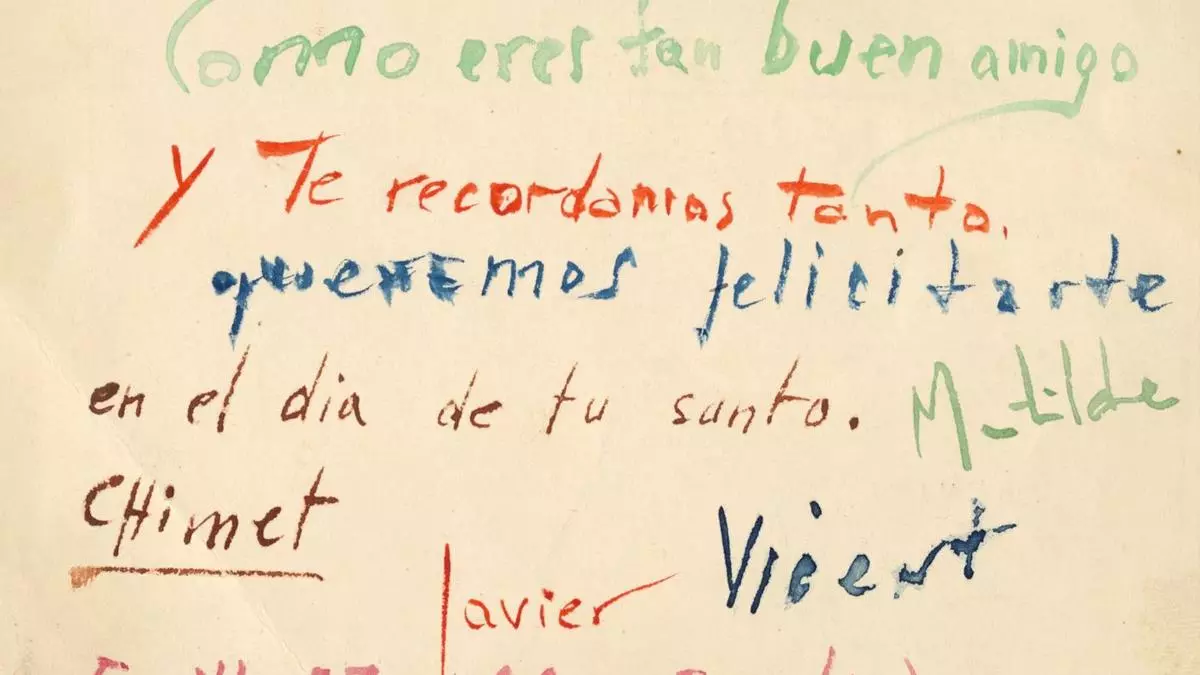 Como eres tan buen amigo
y Te recordamos tanto,
queremos felicitarte
en el dia de tu santo.
Matilde
CHimet
Vicent
Javier